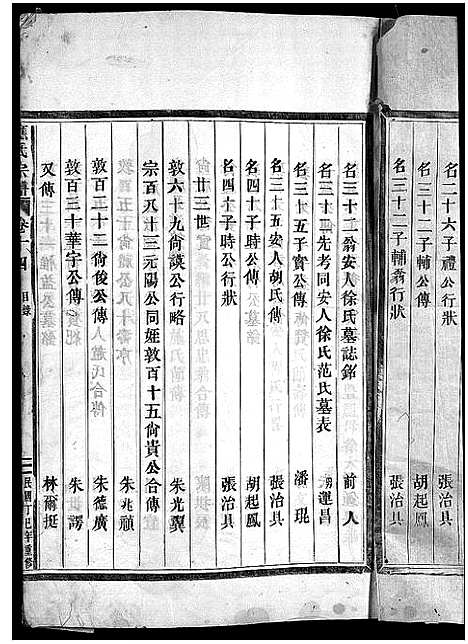 名二十六子禮公行狀 張治具
名三十二子輔公傳 胡起鳳
名三十二子輔翁行狀 張治具
名三十二翁安人徐氏墓誌銘 前人
名三十四先考同安人徐氏范氏墓表 運昌
名三十五子實公傳 潘琨
名三十五安人胡氏傳 張治具
名四十子時公傳 胡起鳳
名四十子時公行狀 張治具
尚廿三世
敦六十九尙謨公行略 朱光翼
宗百八十三元陽公同姪敦百十五尙貴公合傳 朱兆顧
敦百五十二尙俊公傳 朱德廣
敦百三十華宇公傳 朱 諤
又傳 林爾挺
氏宗譜 卷十四 目錄
民國丁巳年重修